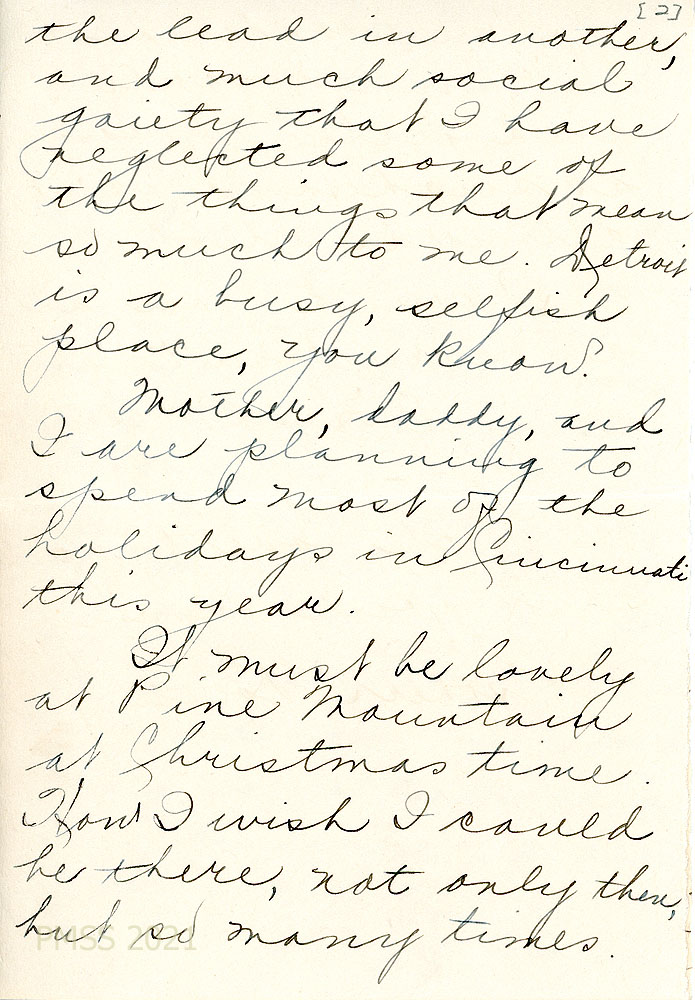 [2]
the lead in another,
and much social
gaiety that I have
neglected some of
the things that mean
so much to me. Detroit
is a busy, selfish
place, you know.
Mother, daddy, and
I are planning to
spend most of the
holidays in Cincinnati
this year.
It must be lovely
at Pine Mountain
at Christmas time.
How I wish I could
be there, not only then,
but so many times.
PMSS 2021